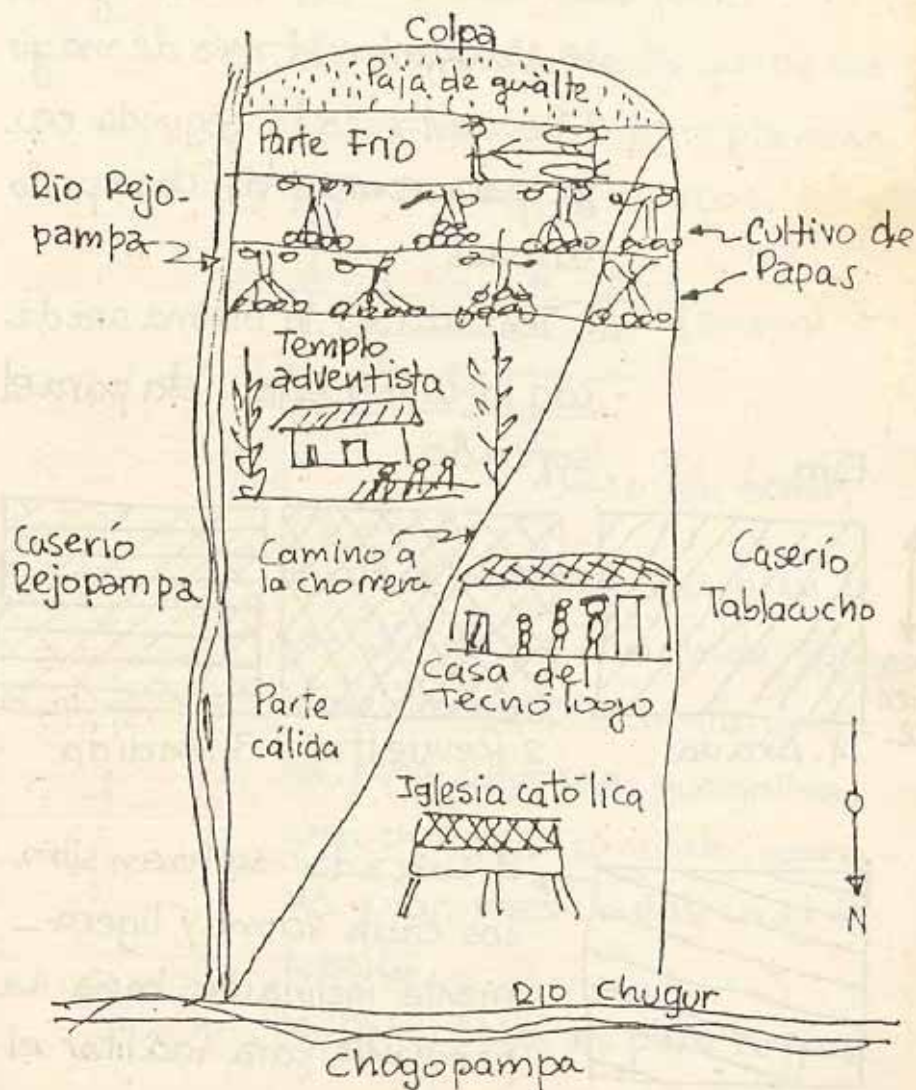 Colpa
Paja de gualte
Parte Frio
Río Rejo-
pampa
Cultivo de
Papas
Templo
adventista
Caserío
Rejopampa
Camino a
la chorrera
Caserío
Tablacucho
Casa del
Tecnólogo
Parte
cálida
Iglesia católica
N
RIO Chugur
Chogopampa